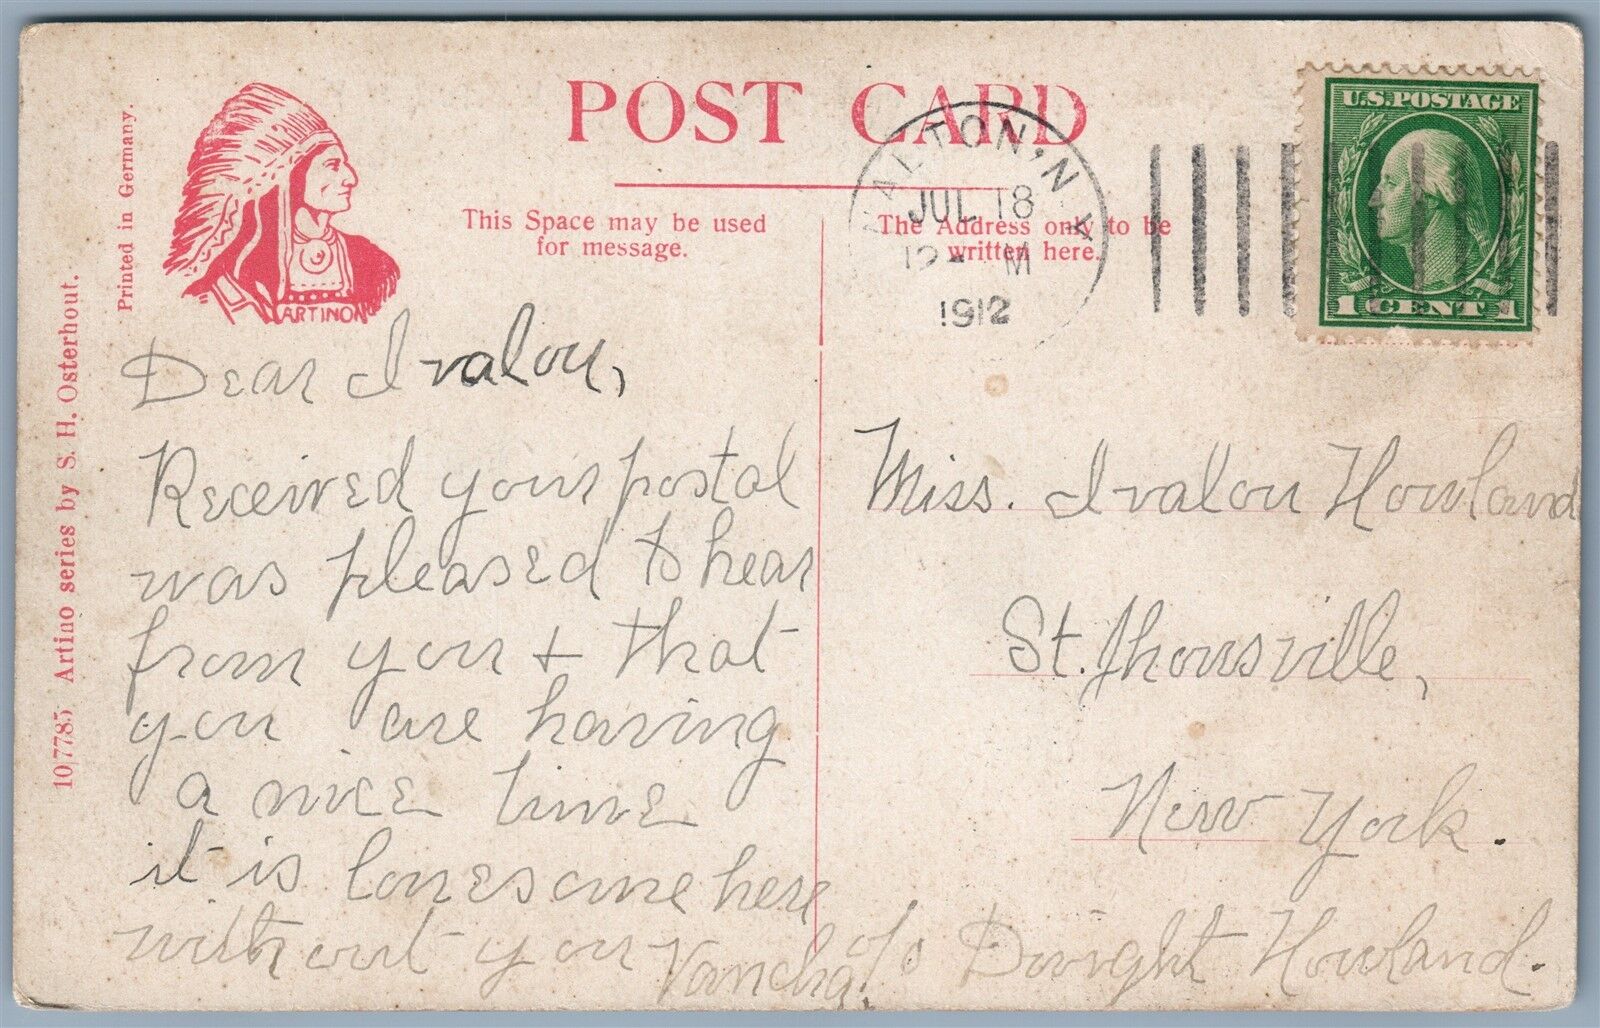 POST CARD
This Space may be used
for message.
The Address only to be
written here.
Printed in Germany.
10,7785 Artino series by S. H. Osterhout.
ARTINO
WALTON, N.Y.
JUL 18
12- M
1912
U.S. POSTAGE
1 CENT 1
Dear Ivalou,
Received your postal
was pleased to hear
from you + that
you are having
a nice time
it is lonesome here
without you
Miss. Ivalou Howland
St. Jhonsville,
New York.
c/o Dwight Howland.